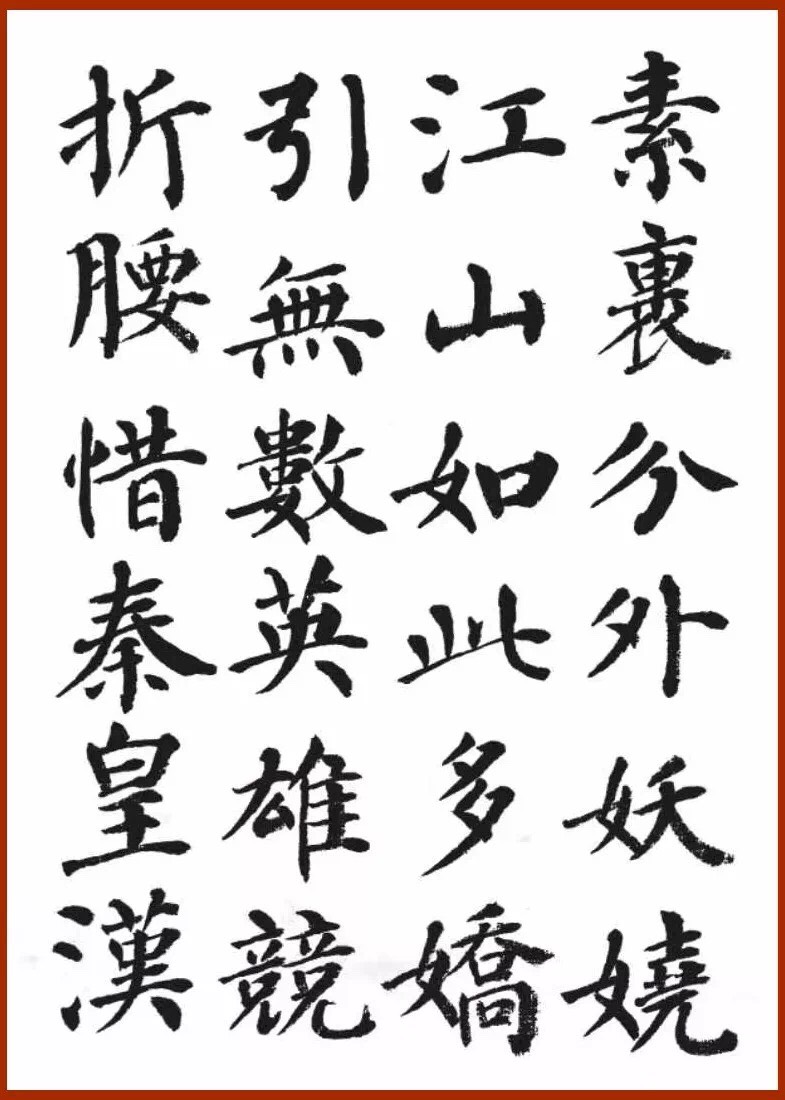 素裹分外妖嬈
江山如此多嬌
引無數英雄競
折腰惜秦皇漢